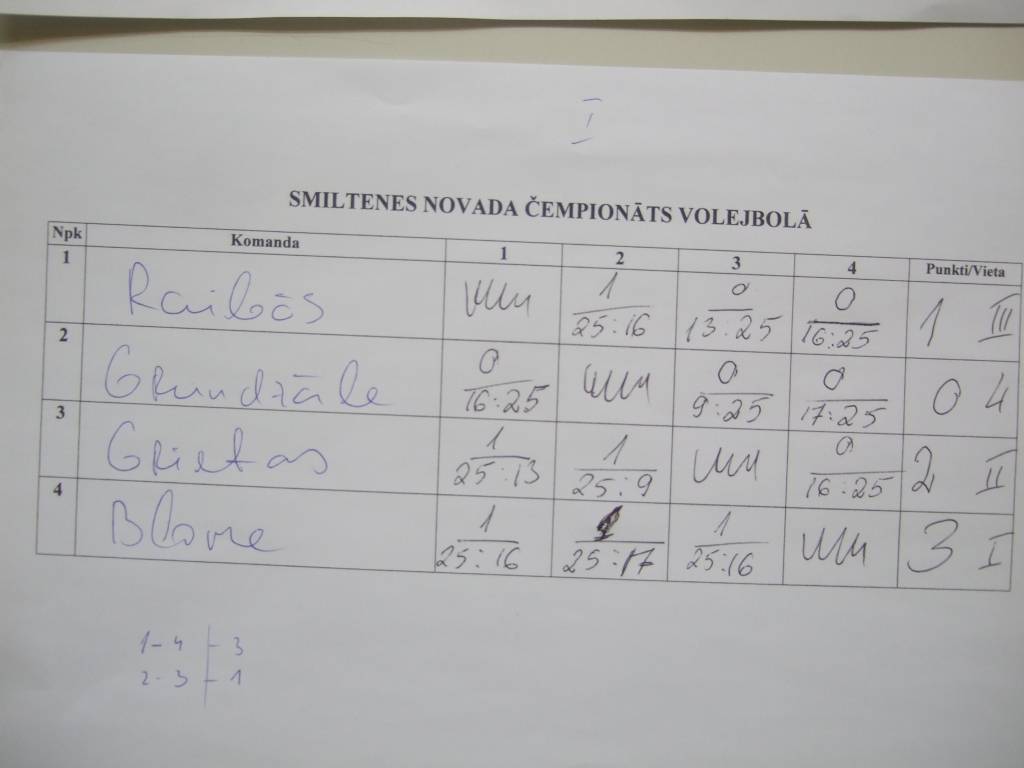 I
SMILTENES NOVADA ČEMPIONĀTS VOLEJBOLĀ
Npk Komanda 1 2 3 4 Punkti/Vieta
1 Raibās 1 0 0 1 III
25:16 13:25 16:25
2 Grundzāle 0 0 0 0 4
16:25 9:25 17:25
3 Grietas 1 1 0 2 II
25:13 25:9 16:25
4 Blome 1 1 1 3 I
25:16 25:17 25:16
1-4 - 3
2-3 - 1